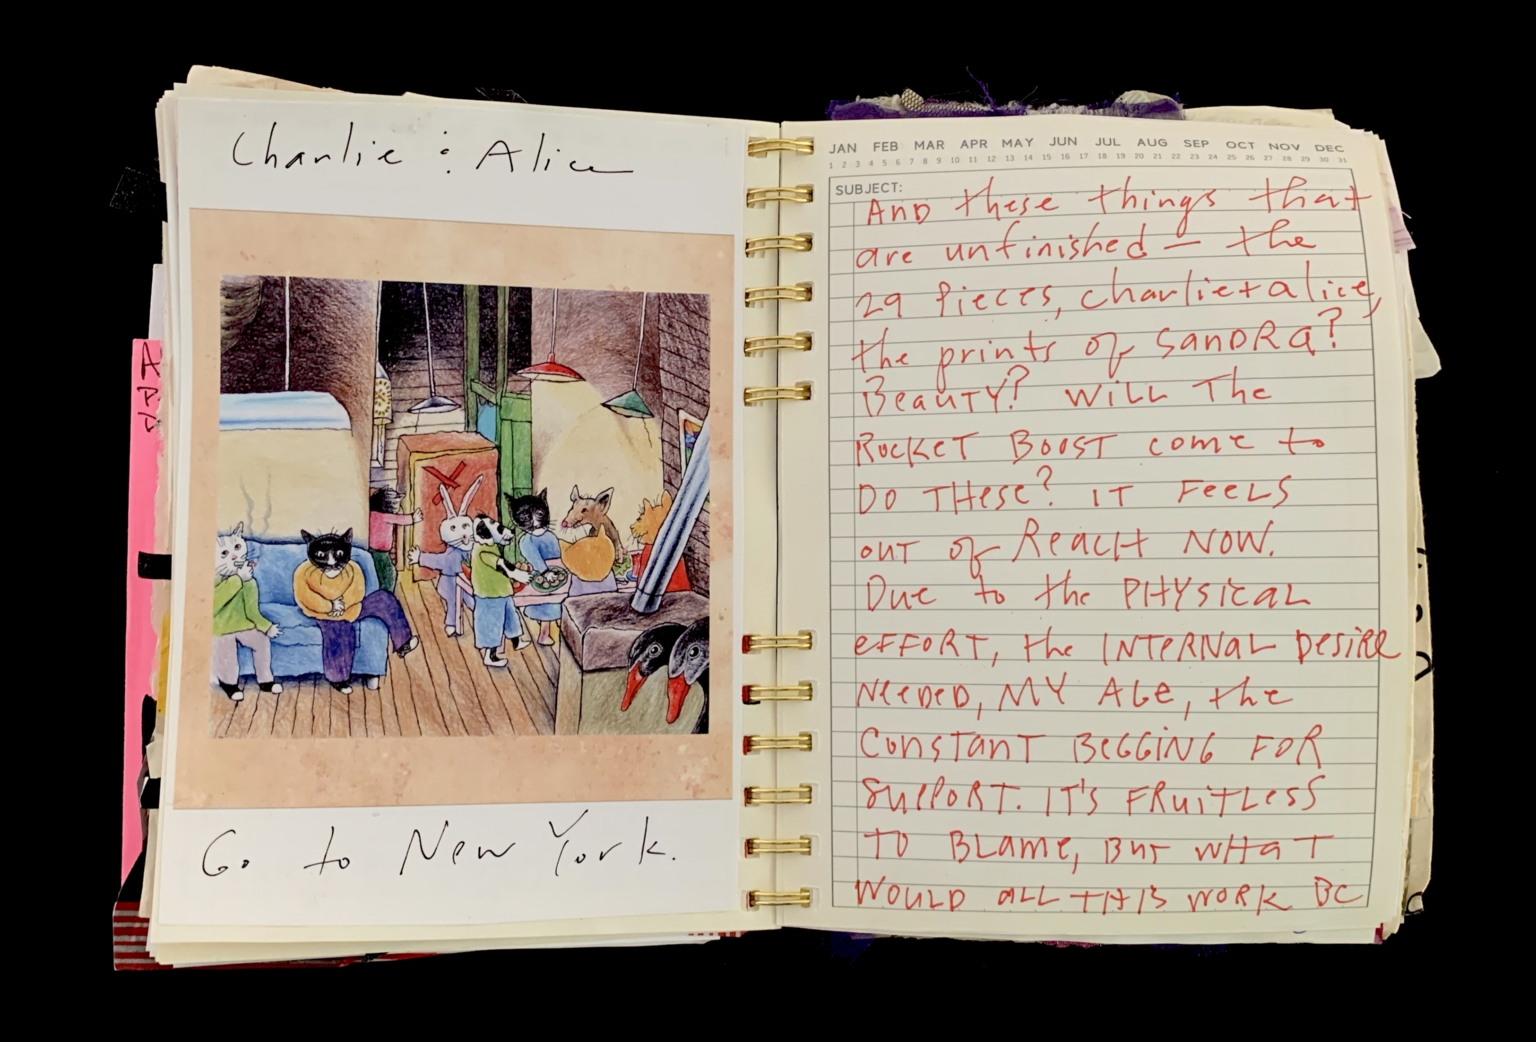 Charlie : Alice
Go to New York.
JAN FEB MAR APR MAY JUN JUL AUG SEP OCT NOV DEC
1 2 3 4 5 6 7 8 9 10 11 12 13 14 15 16 17 18 19 20 21 22 23 24 25 26 27 28 29 30 31
SUBJECT:
AND these things that
are unfinished — the
29 pieces, charlie + alice,
the prints of SANDRA?
BEAUTY? WILL The
ROCKET BOOST come to
DO THESE? IT FEELS
OUT OF REACH NOW.
Due to the PHYSICAL
EFFORT, the INTERNAL DESIRE
NEEDED, MY AGE, the
CONSTANT BEGGING FOR
SUPPORT. IT'S FRUITLESS
TO BLAME, BUT WHAT
WOULD ALL THIS WORK BE